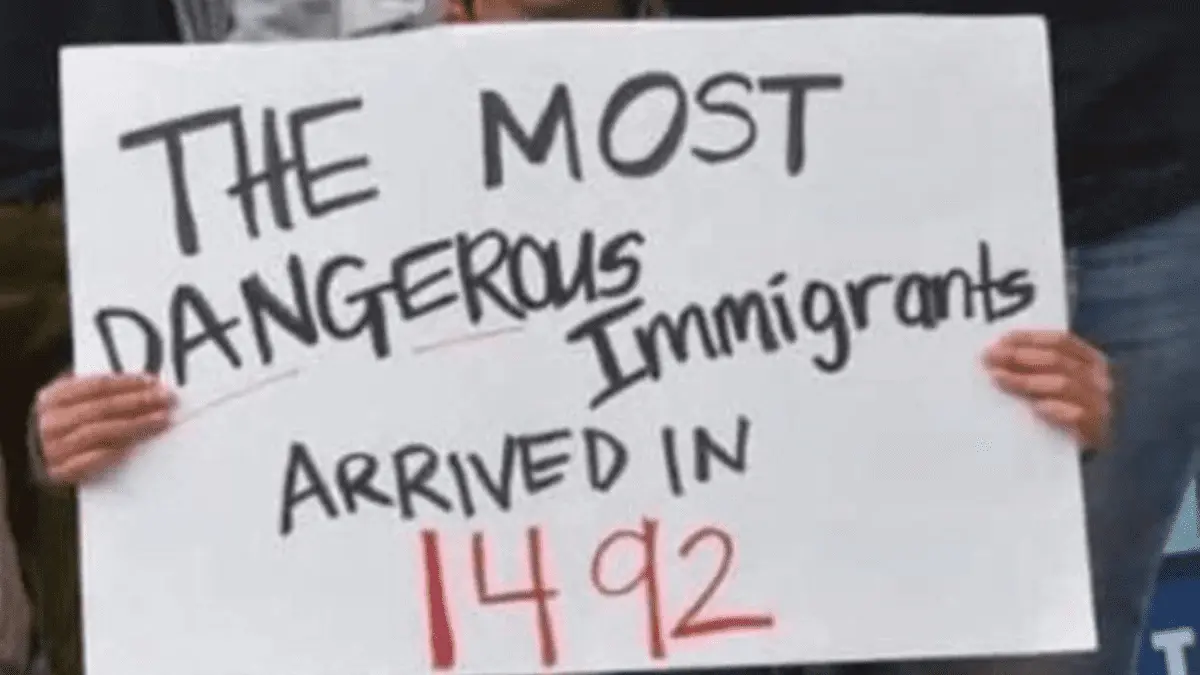 THE MOST
DANGEROUS
Immigrants
ARRIVED IN
1492
T